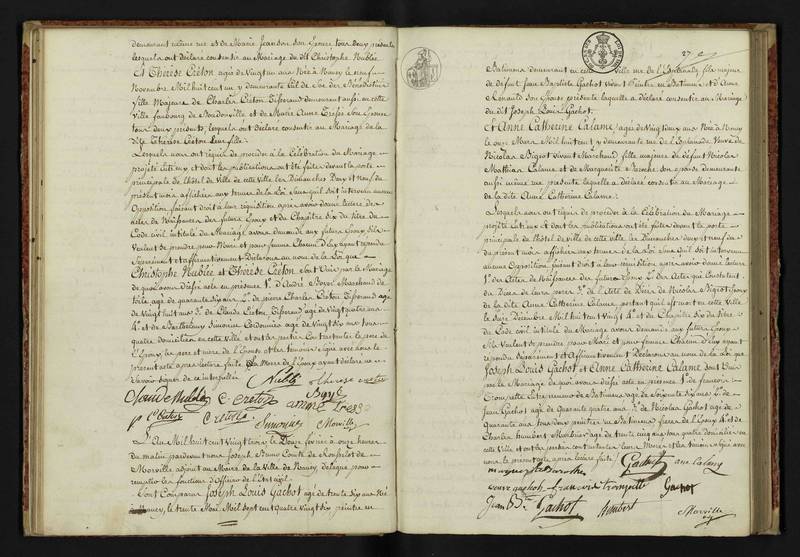 demeurant même rue et de Marie Jeanson son Epouse tous deux présents
lesquels ont déclaré consentir au Mariage du dit Christophe Nublée
Et Thérèse Créton agée de Vingt un ans Née à Nancy le neuf
Novembre Mil huit cent un y demeurante
fille Majeure de Charles Créton Tisserand demeurant aussi en cette
ville faubourg de Boudonville et de Marie Anne son Epouse
tous deux présents, lesquels ont déclaré Consentir au Mariage de la
dite Thérèse Créton leur fille.
Lesquels nous ont requis de procéder à la Célébration du Mariage
projeté entr'eux et dont les publications ont été faites devant la porte
principale de l'hôtel de Ville de cette Ville les Dimanches Deux et Neuf du
présent mois affichées aux termes de la loi sans qu'il soit intervenu aucune
Opposition faisant droit à leur réquisition après avoir donné lecture des
actes de Naissances des futurs Epoux et du Chapitre Six du titre du
Code civil intitulé du Mariage avons demandé aux futurs Epoux s'ils
Veulent se prendre pour Mari et pour femme Chacun d'Eux ayant répondu
Séparément et affirmativement Déclarons au nom de la Loi que
Christophe Nublée et Thérèse Créton sont Unis par le Mariage
de quoi avons Dressé acte en présence 1° d'André Marchand de
toile agé de quarante six ans 2° de pierre Charles Créton Tisserand agé
de Vingt huit ans 3° de Claude Créton, Tisserand agé de Vingt quatre ans
4° et de Barthelemy Simonin Cordonnier agé de Vingt six ans tous
quatre domiciliés en cette Ville et ont les parties Contractantes le père de
l'Epoux, les père et mère de l'Epouse et les témoins signé avec nous le
présent acte après lecture faite. La Mère de l'Epoux ayant déclaré ne
Savoir signer de ce interpellée
Simonin Morville
L'An Mil huit cent Vingt trois le Douze février à onze heures
du matin pardevant nous Joseph Bruno Comte de
Morville adjoint au Maire de la Ville de Nancy délégué pour
remplir les fonctions d'Officier de l'Etat civil
Sont Comparus Joseph Louis Gachot agé de trente six ans Né
à Nancy, le trente Mai Mil sept cent quatre Vingt six peintre en
27
Batimens demeurant en cette Ville rue de l'Esplanade fils majeur
de défunt Jean Baptiste Gachot vivant Peintre en Batimens et d'Anne
Renauld son Epouse présente laquelle a déclaré consentir au Mariage
du dit Joseph Louis Gachot.
Et Anne Catherine Calame, agée de Vingt deux ans Née à Nancy
le onze Mars Mil huit cent y demeurante rue de l'Esplanade Veuve de
Nicolas Bigrot vivant Marchand fille majeure de défunt Nicolas
Mathias Calame et de Marguerite son épouse demeurante
aussi même rue présente laquelle a déclaré consentir au Mariage
de la dite Anne Catherine Calame.
Lesquels nous ont requis de procéder à la Célébration du Mariage
projeté entr'eux et dont les publications ont été faites devant la porte
principale de l'hôtel de Ville de cette ville les Dimanches deux et neuf du
présent mois affichées aux termes de la Loi sans qu'il soit intervenu
aucune Opposition, faisant droit à leur réquisition après avoir donné lecture
1° des Actes de Naissances des futurs Epoux 2° des Actes qui Constatent
du Décès de leurs pères 3° de l'Acte de Décès de Nicolas Bigrot Epoux
de la dite Anne Catherine Calame, portant qu'il est mort en cette Ville
le Seize Décembre Mil huit cent Vingt 4° et du Chapitre Six du titre
du Code civil intitulé du Mariage avons demandé aux futurs Epoux
s'ils Veulent se prendre pour Mari et pour femme Chacun d'Eux ayant
répondu Séparément et Affirmativement Déclarons au nom de la Loi que
Joseph Louis Gachot et Anne Catherine Calame Sont Unis
par le Mariage de quoi avons dressé acte en présence 1° de François
Trompette Entrepreneur de Batimens agé de Soixante six ans 2° de
Jean Gachot agé de Quarante quatre ans 3° de Nicolas Gachot agé de
Quarante ans tous deux peintres en Batimens frères de l'Epoux 4° et de
Charles Humbert Menuisier agé de trente cinq ans tous quatre domiciliés en
cette Ville et ont les parties contractantes leurs Mères et les témoins signé avec
nous le présent acte après lecture faite
Gachot
françois trompette Gachot
Jean Bte Gachot Humbert
Morville